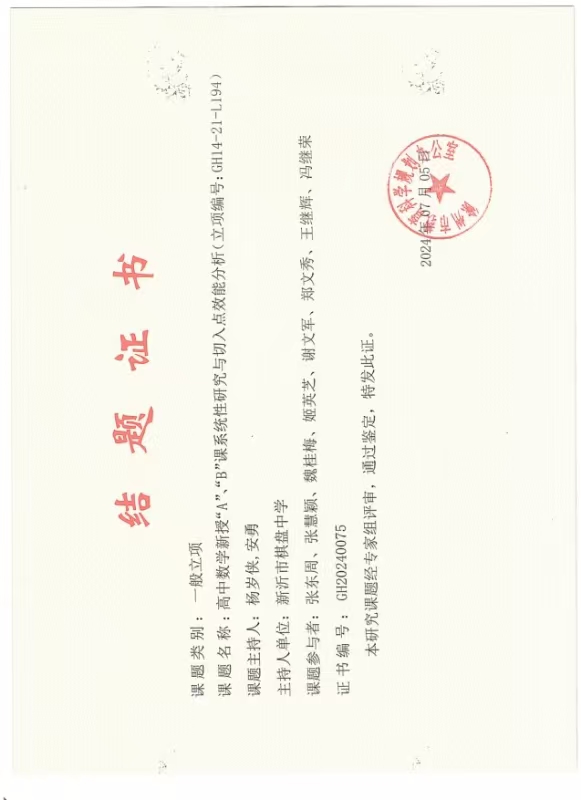 结题证书
课题类别：一般立项
课题名称：高中数学新授“A”、“B”课系统性研究与切入点效能分析(立项编号:GH14-21-L194)
课题主持人：杨岁侠,安勇
主持人单位：新沂市棋盘中学
课题参与者：张东周、张慧颖、魏桂梅、姬英芝、谢文军、郑文秀、王继辉、冯继荣
证书编号：GH20240075
本研究课题经专家组评审，通过鉴定，特发此证。
2024年07月05日